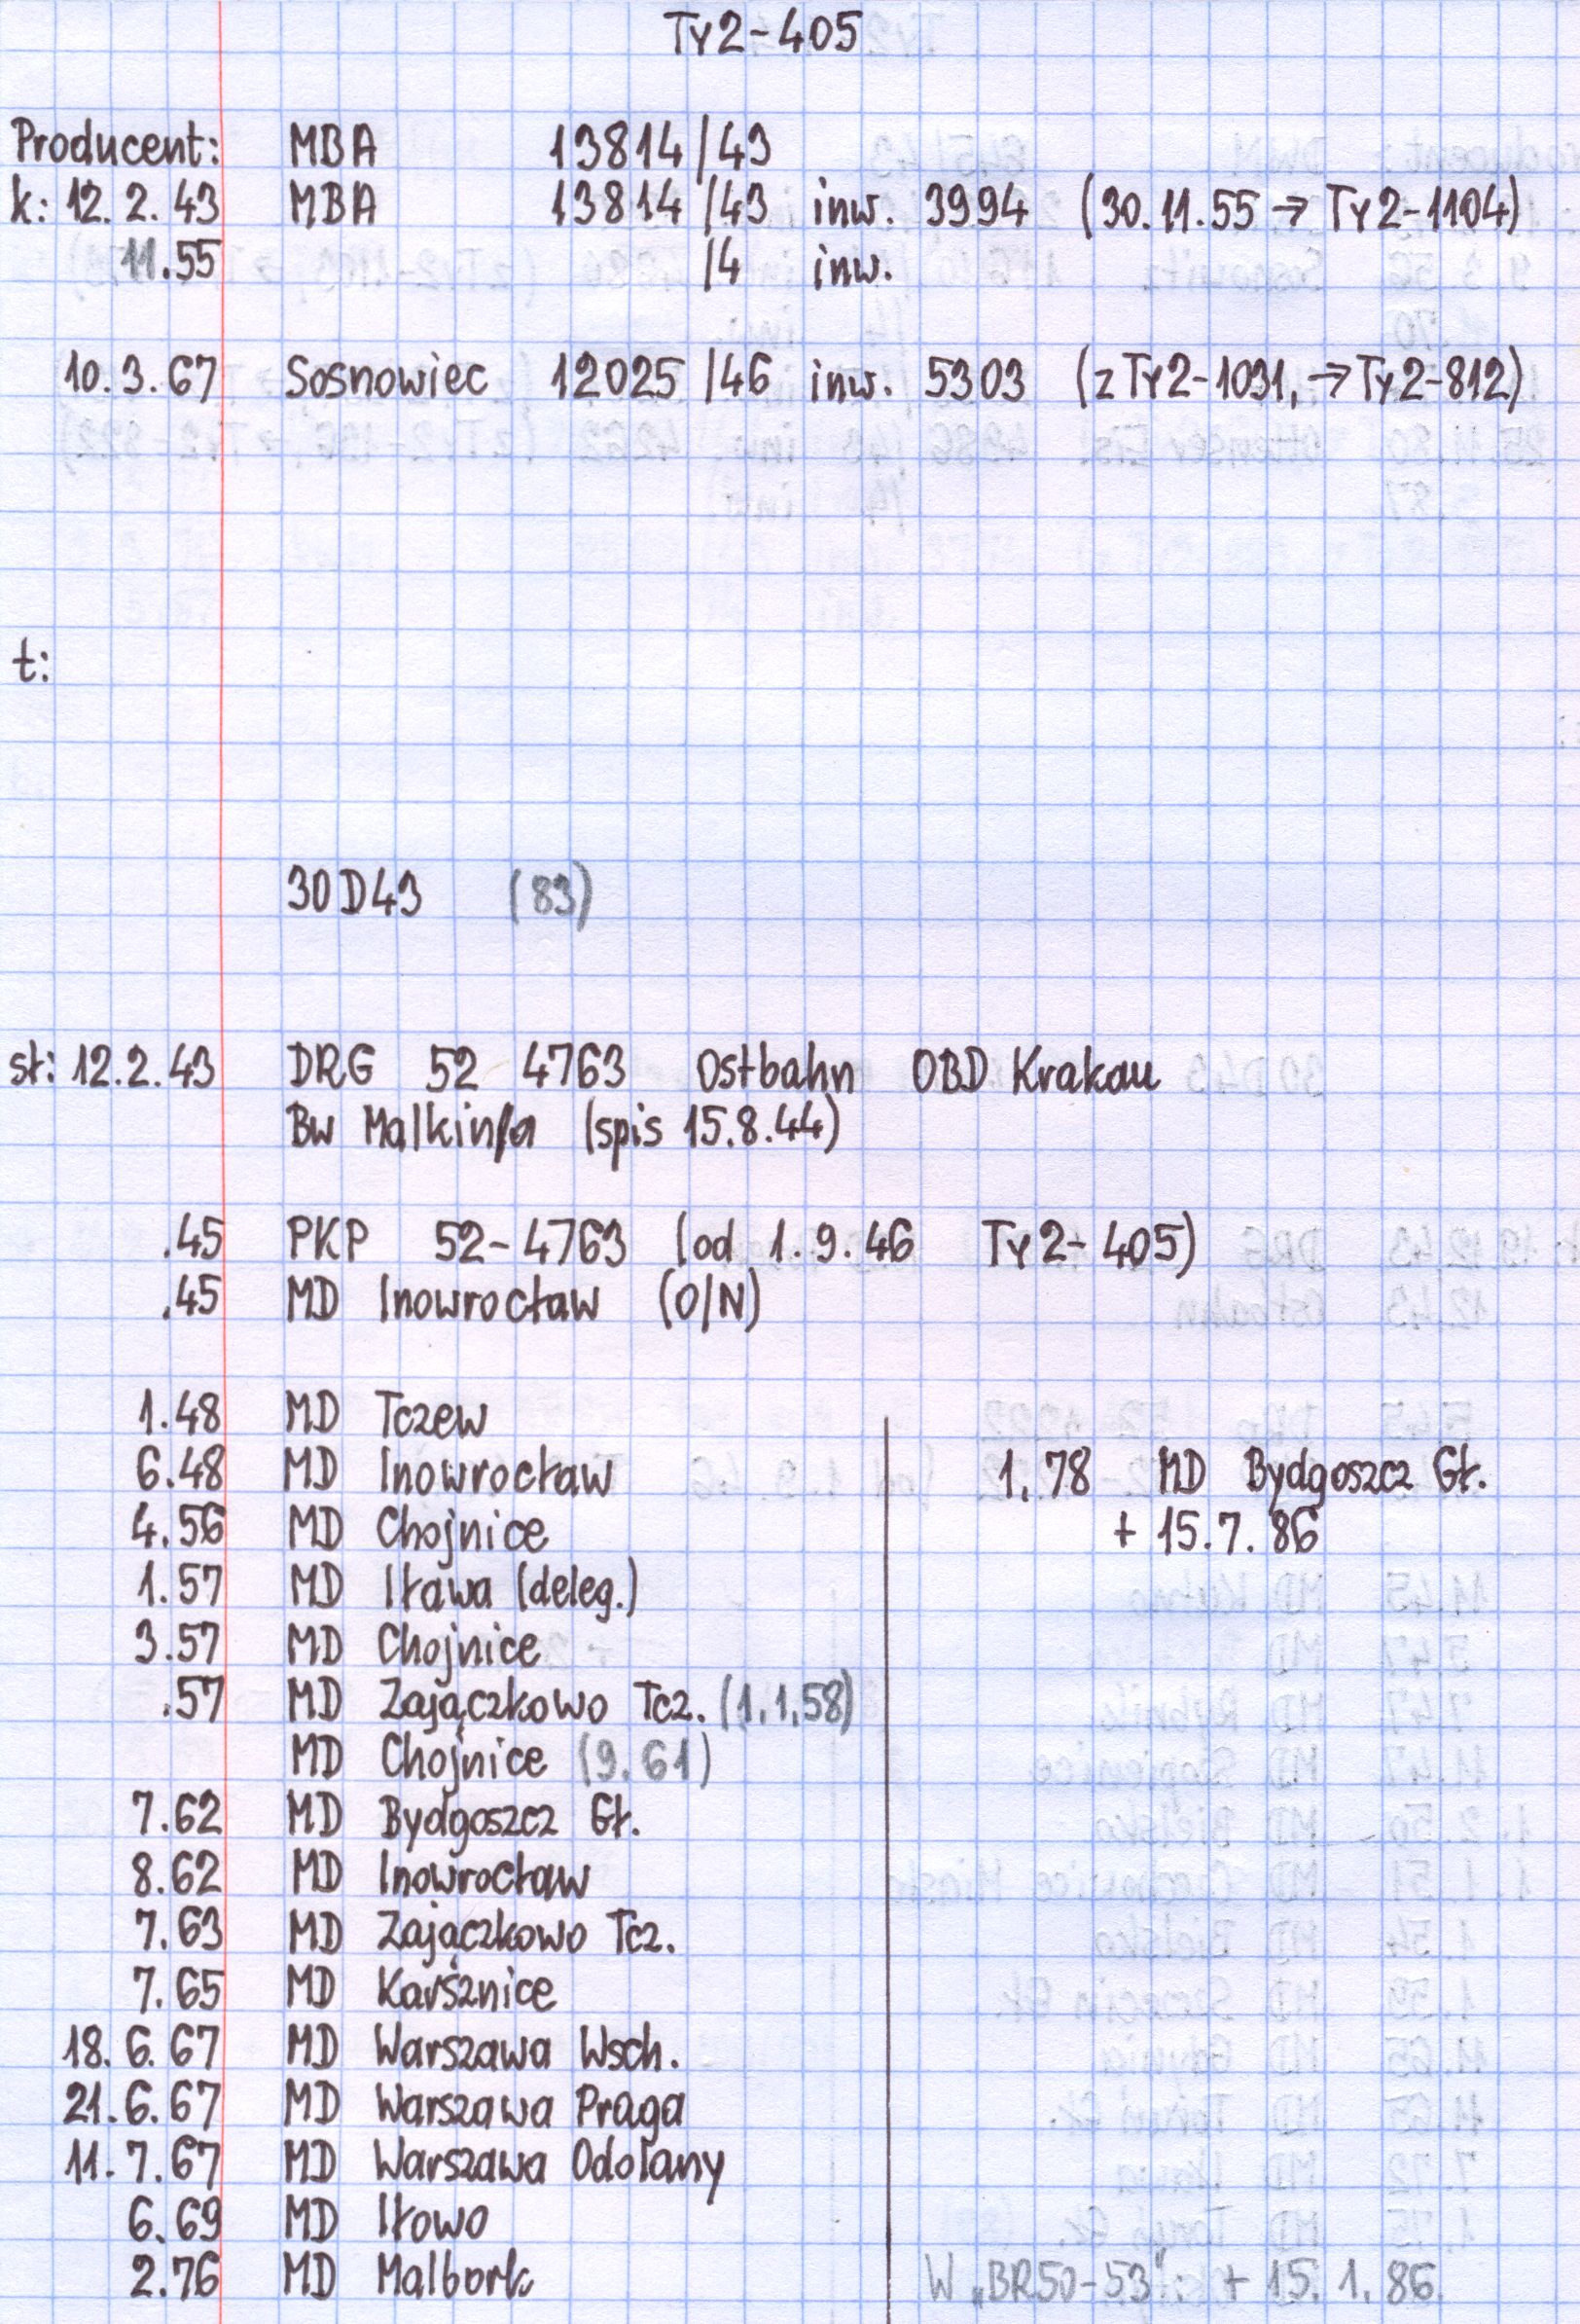 Ty2-405
Producent: MBA 13814/43
k: 12.2.43 MBA 13814/43 inw. 3994 (30.11.55 → Ty2-1104)
11.55 /4 inw.
10.3.67 Sosnowiec 12025/46 inw. 5303 (z Ty2-1031, → Ty2-812)
t:
30D43 (83)
st: 12.2.43 DRG 52 4763 Ostbahn OBD Krakau
Bw Malkinia (spis 15.8.44)
.45 PKP 52-4763 (od 1.9.46 Ty2-405)
.45 MD Inowrocław (O/N)
1.48 MD Tczew
6.48 MD Inowrocław
4.56 MD Chojnice
1.57 MD Iława (deleg.)
3.57 MD Chojnice
.57 MD Zajączkowo Tcz. (1.1.58)
MD Chojnice (9.61)
7.62 MD Bydgoszcz Gł.
8.62 MD Inowrocław
7.63 MD Zajączkowo Tcz.
7.65 MD Karsznice
18.6.67 MD Warszawa Wsch.
21.6.67 MD Warszawa Praga
11.7.67 MD Warszawa Odolany
6.69 MD Iłowo
2.76 MD Malbork
1.78 MD Bydgoszcz Gł.
+ 15.7.86
W „BR50-53": + 15.1.86.